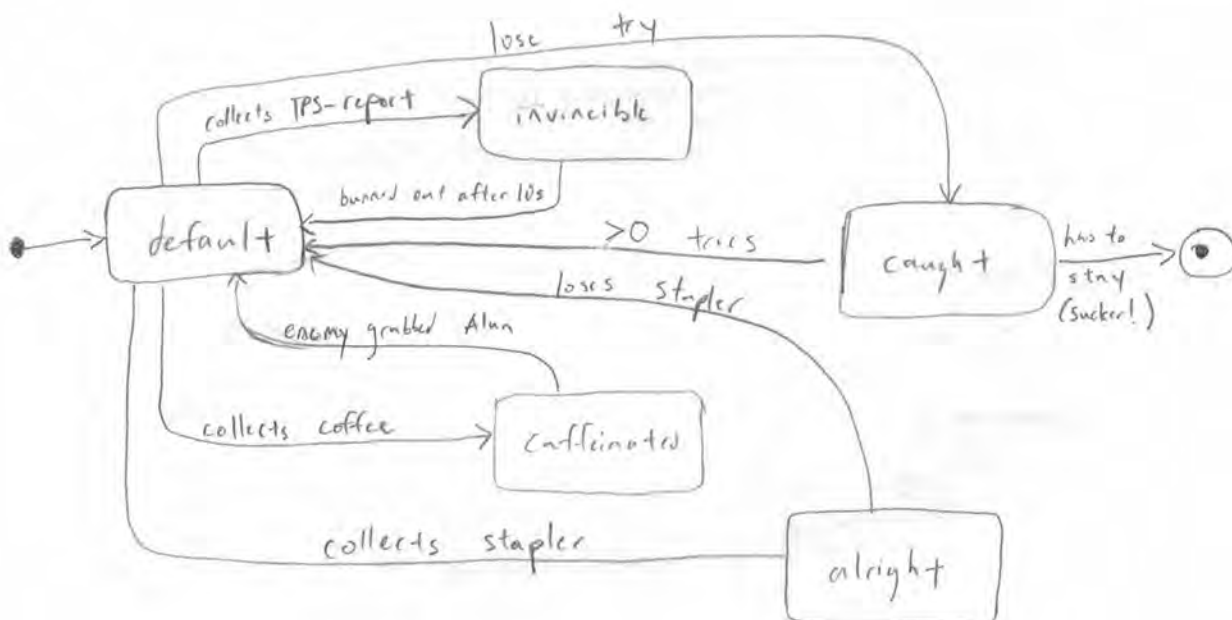 lose try
collects TPS-report
invincible
burned out after 10s
default
>0 tries
caught
has to
stay
(sucker!)
loses stapler
enemy grabbed Alan
collects coffee
caffeinated
collects stapler
alright